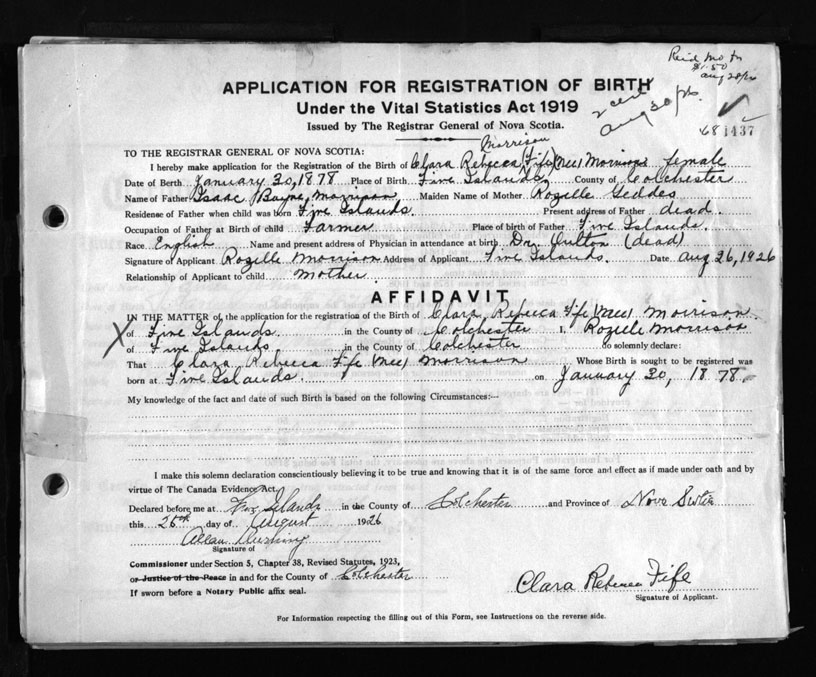 $1.50
APPLICATION FOR REGISTRATION OF BIRTH
Under the Vital Statistics Act 1919
Issued by The Registrar General of Nova Scotia.
68 1437
Morrison
TO THE REGISTRAR GENERAL OF NOVA SCOTIA:
I hereby make application for the Registration of the Birth of Clara Rebecca (Fife) (nee) Morrison female
Date of Birth January 20, 1878 Place of Birth Five Islands County of Colchester
Name of Father Isaac Morrison Maiden Name of Mother Rozille Geddes
Residense of Father when child was born Five Islands. Present address of Father dead.
Occupation of Father at Birth of child Farmer Place of birth of Father Five Islands.
Race English Name and present address of Physician in attendance at birth Dr. (dead)
Signature of Applicant Rozille Morrison Address of Applicant Five Islands. Date Aug 26, 1926
Relationship of Applicant to child Mother
AFFIDAVIT
IN THE MATTER of the application for the registration of the Birth of Clara Rebecca Fife (nee) Morrison
X of Five Islands in the County of Colchester I, Rozille Morrison
of Five Islands in the County of Colchester do solemnly declare:
That Clara Rebecca Fife (nee) Morrison Whose Birth is sought to be registered was
born at Five Islands. on January 20, 1878.
My knowledge of the fact and date of such Birth is based on the following Circumstances:—
I make this solemn declaration conscientiously believing it to be true and knowing that it is of the same force and effect as if made under oath and by
virtue of The Canada Evidence Act.
Declared before me at Five Islands in the County of Colchester and Province of Nova Scotia
this 26th day of August 1926
Allan
Signature of
Commissioner under Section 5, Chapter 38, Revised Statutes, 1923,
or Justice of the Peace in and for the County of Colchester
If sworn before a Notary Public affix seal.
Clara Rebecca Fife
Signature of Applicant.
For Information respecting the filling out of this Form, see Instructions on the reverse side.